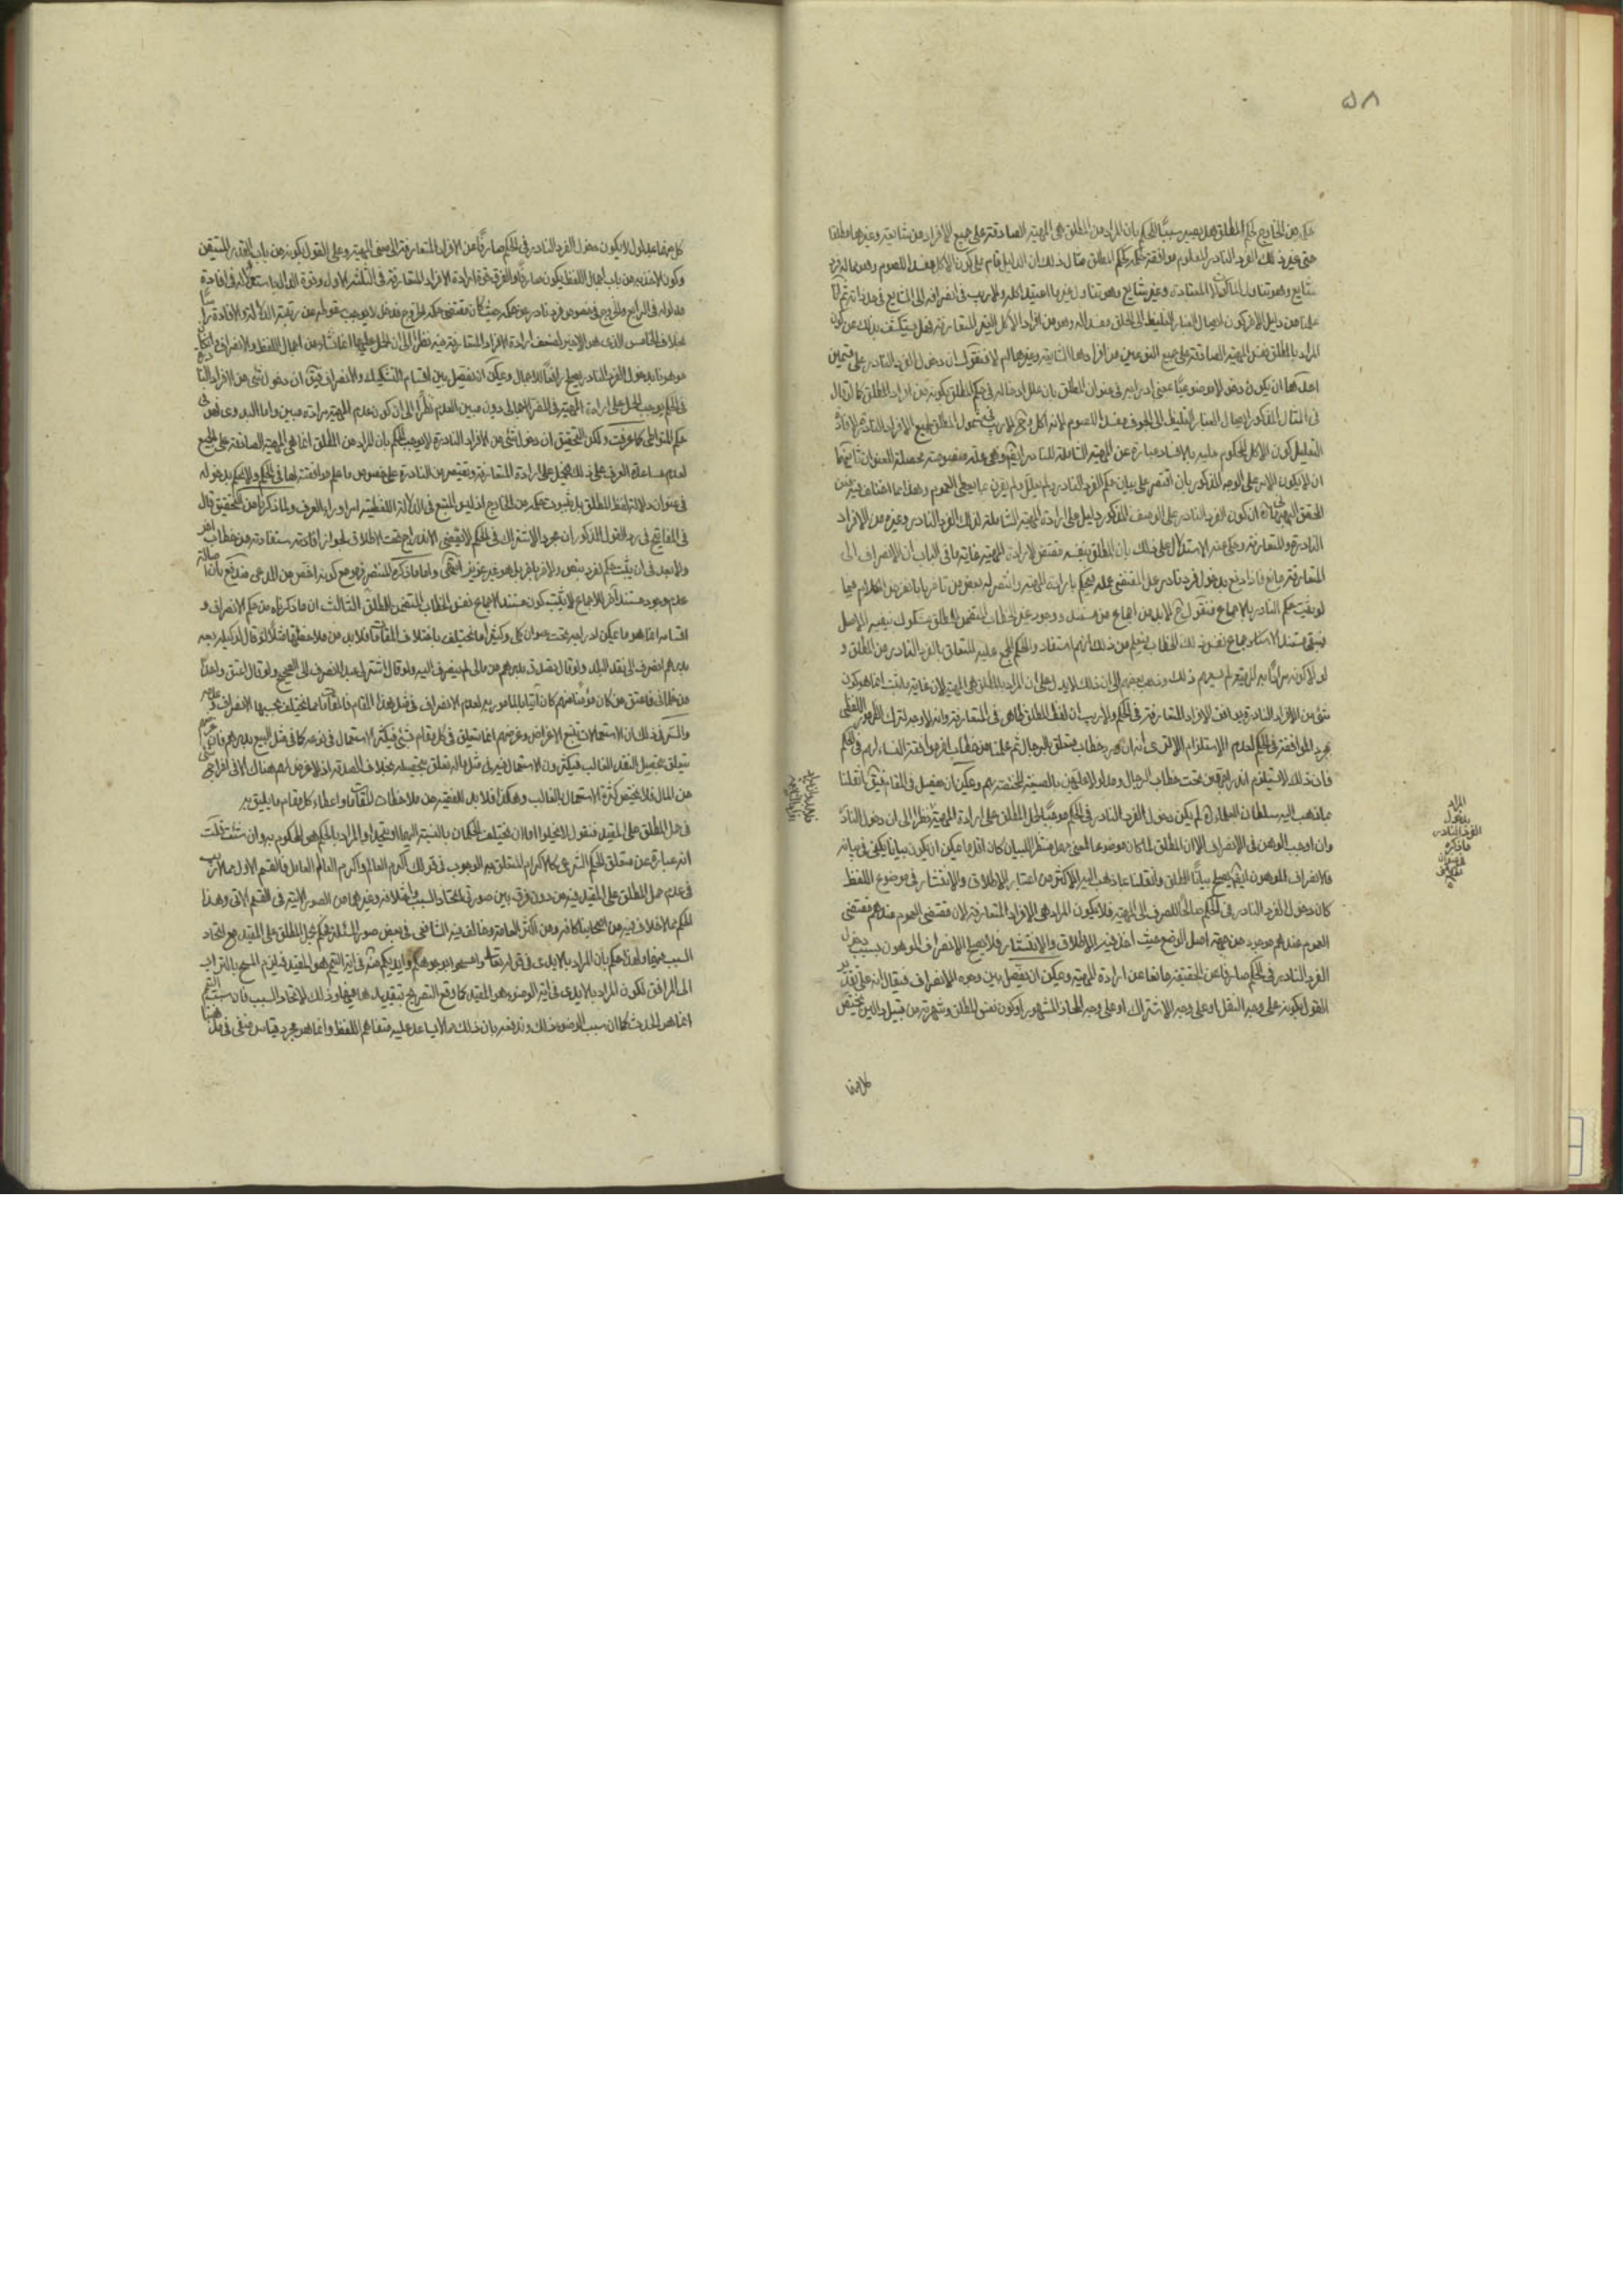 ٥٨
حكمه من الخارج لحكم المطلق هل يصير سببًا للحكم بان المراد من المطلق هى المهية الصادقة على جميع الافراد من شائعة وغيرها مطلقا
حتى غير ذلك الفرد النادر المعلوم موافقة حكمه لحكم المطلق مثال ذلك ان الدليل قام على كون الاكل مفسدا للصوم وهو مما له فرد
شايع وهو تناول الماكولات المعتادة وغير شايع وهو تناول غير ما اعتيد اكله ولا ريب فى انصرافه الى الشايع فى حد ذاته ثم انا
علمنا من دليل اخر كون ايصال الغبار الغليظ الى الحلق مفسدا له وهو من افراد الاكل الغير المتعارفة فهل يستكشف بذلك عن كون
المراد بالمطلق نفس المهية الصادقة على جميع النوعين من افرادها الشايعة وغيرها ام لا فنقول ان دخول الفرد النادر على قسمين
احدهما ان يكون دخولا موضوعيًا عنى ادراجه فى عنوان المطلق بان علل ادخاله فى حكم المطلق بكونه من افراد المطلق كما لو قال
فى المثال المذكور ايصال الغبار الغليظ الى الجوف مفسد للصوم لانه اكل و لا ريب فى شمول المطلق لجميع الافراد النادرة لافادة
التعليل كون الاكل المحكوم عليه بالافساد عبارة عن المهية الشاملة للنادر ايضًا وهى علة منصوصة محصلة للعنوان ثانيهما
ان لا يكون الامر على الوجه المذكور بان اقتصر على بيان حكم الفرد النادر ولم يعلل ولم يقرن بما يعطى العموم وهذا مما اختلف فيه فعن
المحقق البهبهانى ان كون الفرد النادر على الوصف المذكور دليل على ارادة المهية الشاملة لذلك الفرد النادر وغيره من الافراد
النادرة والمتعارفة وحكى عنه الاستدلال على ذلك بان المطلق بنفسه مقتض لارادة المهية غاية ما فى الباب ان الانصراف الى
المتعارفة مانع فاذا دفع بدخول فرد نادر عمل المقتضى عمله فيحكم بارادة المهية وانتصر له بعض من تاخر بانا نفرض الكلام فيما
لو ثبت حكم النادر بالاجماع فنقول لا بد من اجماع من مستند ووجود غير الخطاب المتضمن للمطلق مشكوك نفيه الاصل
لو لا كونه مرادًا به المهية لم يفهم ذلك وذهب بعضهم الى ان ذلك لا يدل على ان المراد بالمطلق هى المهية لان غاية ما ثبت انما هو كون
شئ من الافراد النادرة يوافق الافراد المتعارفة فى الحكم ولا ريب ان لفظ المطلق ظاهر فى المتعارفة وانه لا وجه لترك الظهور اللفظى
بمجرد الموافقة فى الحكم لعدم الاستلزام الا ترى انه ان ورد خطاب متعلق بالرجال ثم علمنا من خطاب اخر موافقة النساء لهم فى الحكم
فان ذلك لا يستلزم اندراجهن تحت خطاب الرجال ومدلولا عليهن بالصيغة المختصة بهم ويمكن ان يفصل فى المقام فيقال ان قلنا
بما ذهب اليه سلطان العلماء لم يكن دخول الفرد النادر فى الحكم موجبًا لحمل المطلق على ارادة المهية نظرًا الى ان دخول النادر
وان اوجب الوهن فى الانصراف الا ان المطلق لما كان موضوعا لمعنى مهمل منتظر للبيان كان اقل ما يمكن ان يكون بيانا يكفى فى بيانه
فالانصراف الموهون ايضًا يصلح بيانًا للمطلق وان قلنا بما ذهب اليه الاكثر من اعتبار الاطلاق والانتشار فى موضوع اللفظ
كان دخول الفرد النادر فى الحكم صالحًا للصرف الى المهية فلا يكون المراد هى الافراد المتعارفة لان مقتضى العموم عندهم مقتضى
العموم عندهم موجود من جهة اصل الوضع حيث اخذ فيه الاطلاق والانتشار فلا يصلح الانصراف الموهون بسبب دخول
الفرد النادر فى الحكم صارفا عن الحقيقة مانعا عن ارادة المهية ويمكن ان يفصل بين وجوه الانصراف فيقال انه على تقدير
القول بكونه على وجه النقل او على وجه الاشتراك او على وجه المجاز المشهور او كون نفس المطلق وشهرته من قبيل دالين يختص
كل منهما
المراد
بدخول
الفرد النادر
ما ذكره
كل منهما بمدلول لا يكون دخول الفرد النادر فى الحكم صارفًا عن الافراد المتعارفة الى نفس المهية وعلى القول بكونه من باب القدر المتيقن
وكون الاخذ به من باب اجمال اللفظ يكون صارفًا والفرق قوة ارادة الافراد المتعارفة فى الثلثة الاول وقوة الدال باستعماله فى افادة
مدلوله فى الرابع والخروج فى خصوص فرد نادر عن حكمه حيث كان مقتضى حكمه الخروج فدخل لا يوجب سقوطه عن رتبة الدلالة والافادة
بخلاف الخامس الذى هو الاخير لضعف ارادة الافراد المتعارفة فيه نظرًا الى ان الحمل عليها انما نشاء من اجمال اللفظ والانصراف
موهونا بدخول الفرد النادر يصلح رافعًا للاجمال ويمكن ان يفصل بين اقسام التشكيك والانصراف فيقال ان دخول شئ من الافراد النادرة
فى الحكم يوجب الحمل على ارادة المهية فى المضر الاجمالى دون مبين العدم نظرًا الى ان كون عدم المهية مرادة مبين واما البدوى فهو فى
حكم المتواطى كما عرفت ولكن التحقيق ان دخول شئ من الافراد النادرة لا يوجب الحكم بان المراد من المطلق انما هى المهية الصادقة على الجميع
لعدم مساعدة العرف على ذلك فيحمل على ارادة المتعارفة ويقتصر من النادرة على خصوص ما علم موافقته لها فى الحكم ولا يحكم بدخوله
فى عنوان دلالة لفظ المطلق بل بثبوت حكمه من الخارج اذ ليس المتبع فى الدلالة اللفظية امر اوراء العرف ولما ذكرنا من التحقيق قال
فى المفاتيح فى رد القول المذكور ان مجرد الاشتراك فى الحكم لا يقتضى الاندراج تحت الاطلاق لجواز افادته مستفادة من خطاب اخر
ولا بعد فى ان يثبت حكم لفرد بنص ولاخر باخر بل هو غير عزيز انتهى واما ما ذكره المنتصر فهو مع كونه اخص من المدعى مندفع بان اصالة
عدم وجود مستند اخر للاجماع لا يثبت كون مستند الاجماع نفس الخطاب المتضمن للمطلق الثالث ان ما ذكرناه من حكم الانصراف و
اقسامه انما هو ما يمكن ادراجه تحت عنوان كلى وكثيرا ما تختلف باختلاف المقامات فلا بد من ملاحظتها مثلا لو قال لوكيله بعه
بدرهم انصرف الى نقد البلد ولو قال تصدق بدرهم من مالى لم ينصرف اليه ولو قال اشتر لى عبدا انصرف الى الصحيح ولو قال اعتق واحدًا
من غلمانى فاعتق من كان مؤمنا منهم كان اتيا بالمامور به لعدم الانصراف فى مثل هذا المقام فالمقامات مما يختلف بحسبها الانصراف وعدمه
والسر فى ذلك ان الاستعمالات يتبع الاغراض وغرضهم انما يتعلق فى كل مقام بشئ فيكثر الاستعمال فى نوعه كما فى مثل البيع بدرهم فان غرضهم
يتعلق بتحصيل النقد الغالب فيكثرون الاستعمال فيه فى مثل ماله تعلق بتحصيله بخلاف الصدقة اذ لا غرض لهم هناك الا فى اخراج شئ
من المال فلا يختص كثرة الاستعمال بالغالب وهكذا فلا بد للفقيه من ملاحظات المقامات واعطاء كل مقام ما يليق به
فى حمل المطلق على المقيد فنقول لا يخلو اما ان يختلف الحكمان بالنسبة اليهما او يتحد والمراد بالحكم هو المحكوم به وان شئت قلت
انه عبارة عن متعلق الحكم الشرعى كالاكرام المتعلق به الوجوب فى قولك اكرم العالم واكرم العالم العامل فالقسم الاول مما لا ريب
فى عدم حمل المطلق على المقيد فيه من دون فرق بين صورتى اتحاد السبب واختلافه وغيرهما من الصور الاتية فى القسم الاتى وهذا
الحكم مما لا خلاف فيه من اصحابنا كافة ومن اكثر العامة وخالف فيه الشافعى فى بعض صور المسئلة فحكم بحمل المطلق على المقيد مع اتحاد
السبب فيهما ولهذا حكم بان المراد بالايدى فى قوله تعالى وامسحوا بوجوهكم وايديكم منه فى اية التيمم هو المقيد فيلزم المسح بالتراب
الى المرافق لكون المراد بالايدى فى اية الوضوء هو المقيد كما وقع التصريح بتقييدها فيها وذلك لاتحاد السبب فان سبب التيمم
انما هو الحدث كما ان سبب الوضوء ذلك وتدفعه بان ذلك مما لا يساعد عليه متفاهم اللفظ وانما هو مجرد قياس منفى فى مذهبنا